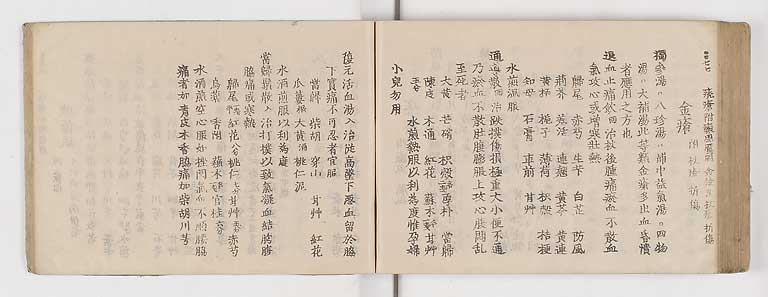 金瘡
附 杖瘡 折傷
獨參湯。八珍湯。補中益氣湯。四物
湯。大補湯此等類金瘡多出血昏憒
者應用之方也
退血止痛飲 四治杖後腫痛瘀血不散血
氣攻心或增寒壮熱
歸尾 赤芍 生芐 白芷 防風
荊芥 羗活 連翹 黄芩 黄連
黄栢 梔子 薄荷 枳殻 桔梗
知母 石膏 車前 甘艸
水煎温服
通導散 四治跌撲傷損極重大小便不通
乃瘀血不散肚腹膨脹上攻心腹悶乱
至死者
大黄 芒硝 枳殻 厚朴 當歸
陳皮 木通 紅花 蘇木 甘艸
水煎熱服以利為度惟孕婦
小兒勿用
復元活血湯 入治從高墜下悪血留於脇
下寳痛不可忍者宜服
當歸 柴胡 穿山 甘艸 紅花
瓜蔞根 大黄酒 桃仁泥
水酒煎服以利為度
當歸鬚散 入治打撲以致氣凝血結胸腹
脇痛或寒熱
歸尾 紅花 桃仁 甘艸 赤芍
烏藥 香附 蘇木 官桂
水酒煎空心服如挫閃氣血不順腰脇
痛者加青皮木香脇痛加柴胡川芎